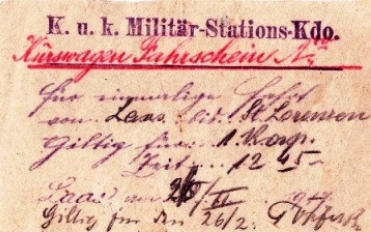 K. u. k. Militär-Stations-Kdo.
Kurswagen Fahrschein Nr
für einmalige Fahrt
von Laas bis St. Lorenzen
Giltig für 1 Korp.
Zeit 12 45
Laas am 26/II 1917
Giltig für den 26/2.